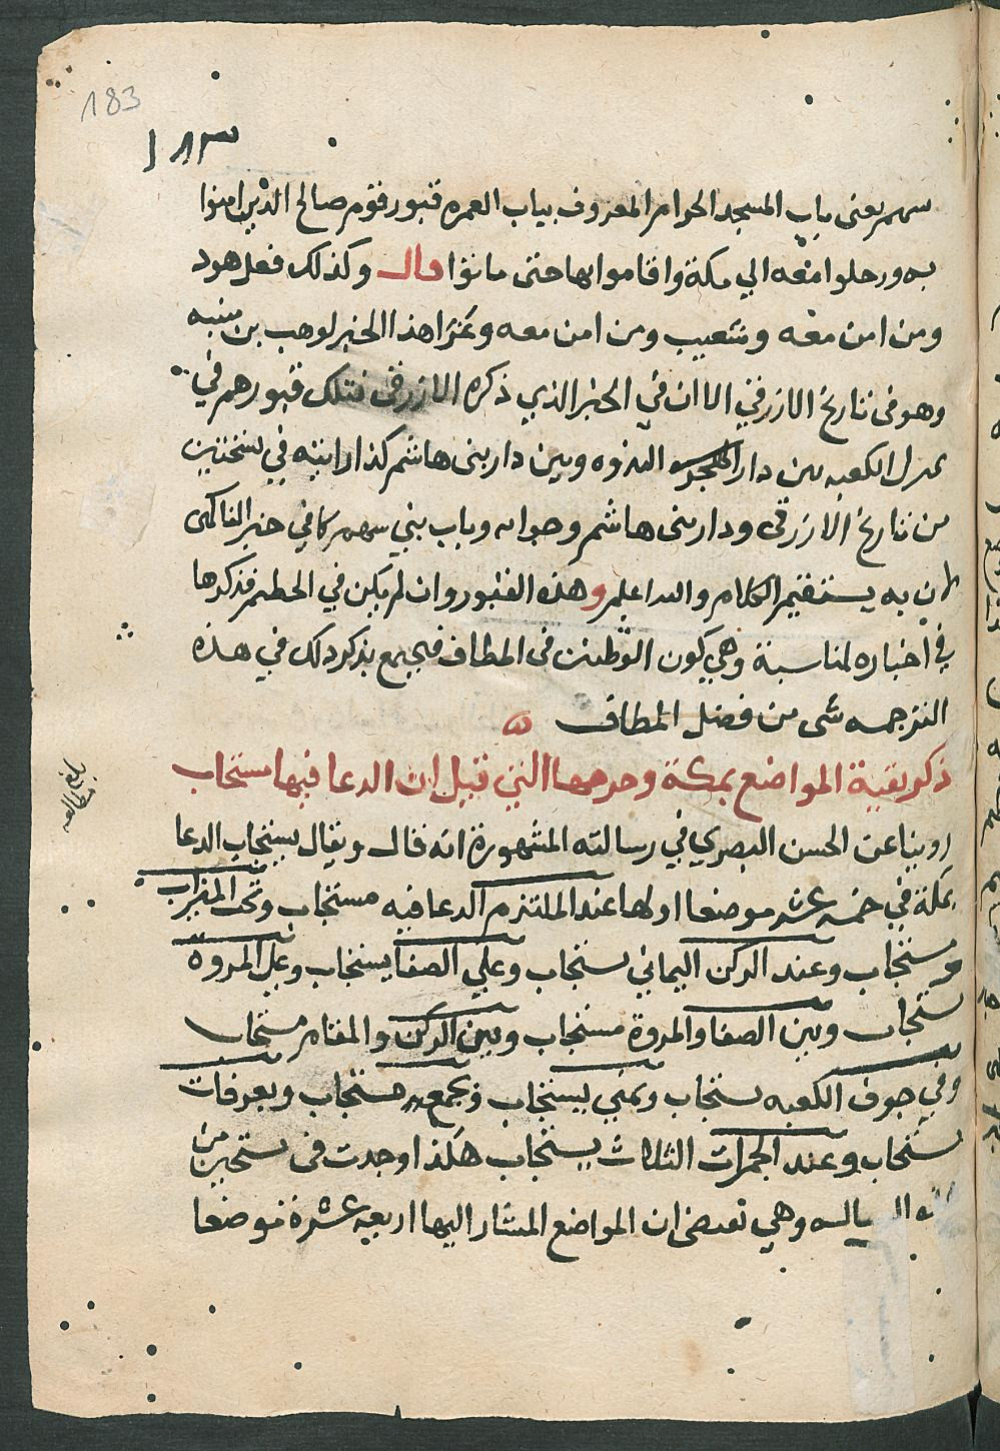 183
١٨٣
سهم يعنى باب المسجد الحرام المعروف بباب العمره قبور قوم صالح الذين امنوا
به ورحلوا معه الي مكة واقاموا بها حتى ماتوا قال وكذلك فعل هود
ومن امن معه وشعيب ومن امن معه وعزا هذا الخبر لوهب بن منبه
وهو فى تاريخ الازرقي الا ان في الخبر الذي ذكره الازرقى فتلك قبورهم في
غربى الكعبه بين دار الندوه وبين دار بنى هاشم كذا رايته في نسختين
من تاريخ الازرقى ودار بنى هاشم وباب بني سهم كما في خبر الفاكهى
فان به يستقيم الكلام والله اعلم وهذه القبور وان لم يكن في الحطيم فذكرها
في اخباره لمناسبة وهي كون الوطئين فى المطاف فيجمع بذكر ذلك في هذه
الترجمه شى من فضل المطاف ه
ذكر بقية المواضع بمكة وحرمها التي قيل ان الدعا فيها مستجاب
روينا عن الحسن البصري في رسالته المشهورة انه قال ويقال يستجاب الدعا
بمكة في خمسه عشر موضعا اولها عند الملتزم الدعا فيه مستجاب وتحت الميزاب
مستجاب وعند الركن اليماني يستجاب وعلي الصفا يستجاب وعلى المروة
يستجاب وبين الصفا والمروة مستجاب وبين الركن والمقام مستجاب
وفي جوف الكعبه يستجاب وبمني يستجاب وبجمع مستجاب وبعرفات
يستجاب وعند الجمرات الثلاث يستجاب هكذا وجدت فى نسختين من
وهي تقتضى ان المواضع المشار اليها اربعه عشرة موضعا